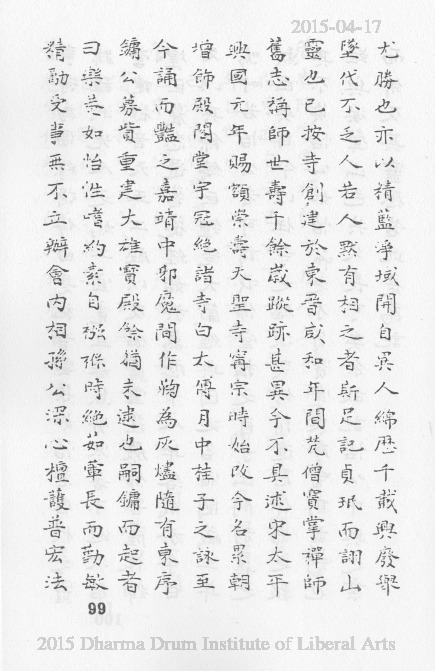 2015-04-17
尤勝也亦以精藍淨域開自異人綿歷千載興廢舉
墜代不乏人若人默有相之者斯足記貞珉而詡山
靈也已按寺創建於東晉咸和年間梵僧寶掌禪師
舊志稱師世壽千餘歲蹤跡甚異今不具述宋太平
興國元年賜額崇壽天聖寺寧宗時始改今名累朝
增飾殿閣堂宇冠絕諸寺白太傅月中桂子之詠至
今誦而豔之嘉靖中邪魔間作煨為灰燼隨有東序
鏞公募貲重建大雄寶殿餘猶未逮也嗣鏞而起者
曰樂菴如怡性嗜約素自襁褓時絕茹葷長而勤敏
精勤受具無不立辦會內相孫公深心檀護普宏法
99
2015 Dharma Drum Institute of Liberal Arts